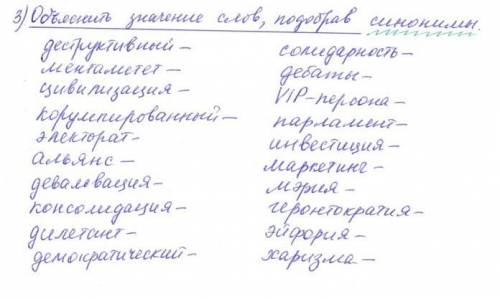 3) Объяснить значение слов, подобрав синонимы.
деструктивный –
менталетет –
цивилизация –
корумпированный –
электорат –
альянс –
девальвация –
консолидация –
дилетант –
демократический –
солидарность –
дебаты –
VIP-персона –
парламент –
инвестиция –
маркетинг –
мэрия –
геронтократия –
эйфория –
харизма –